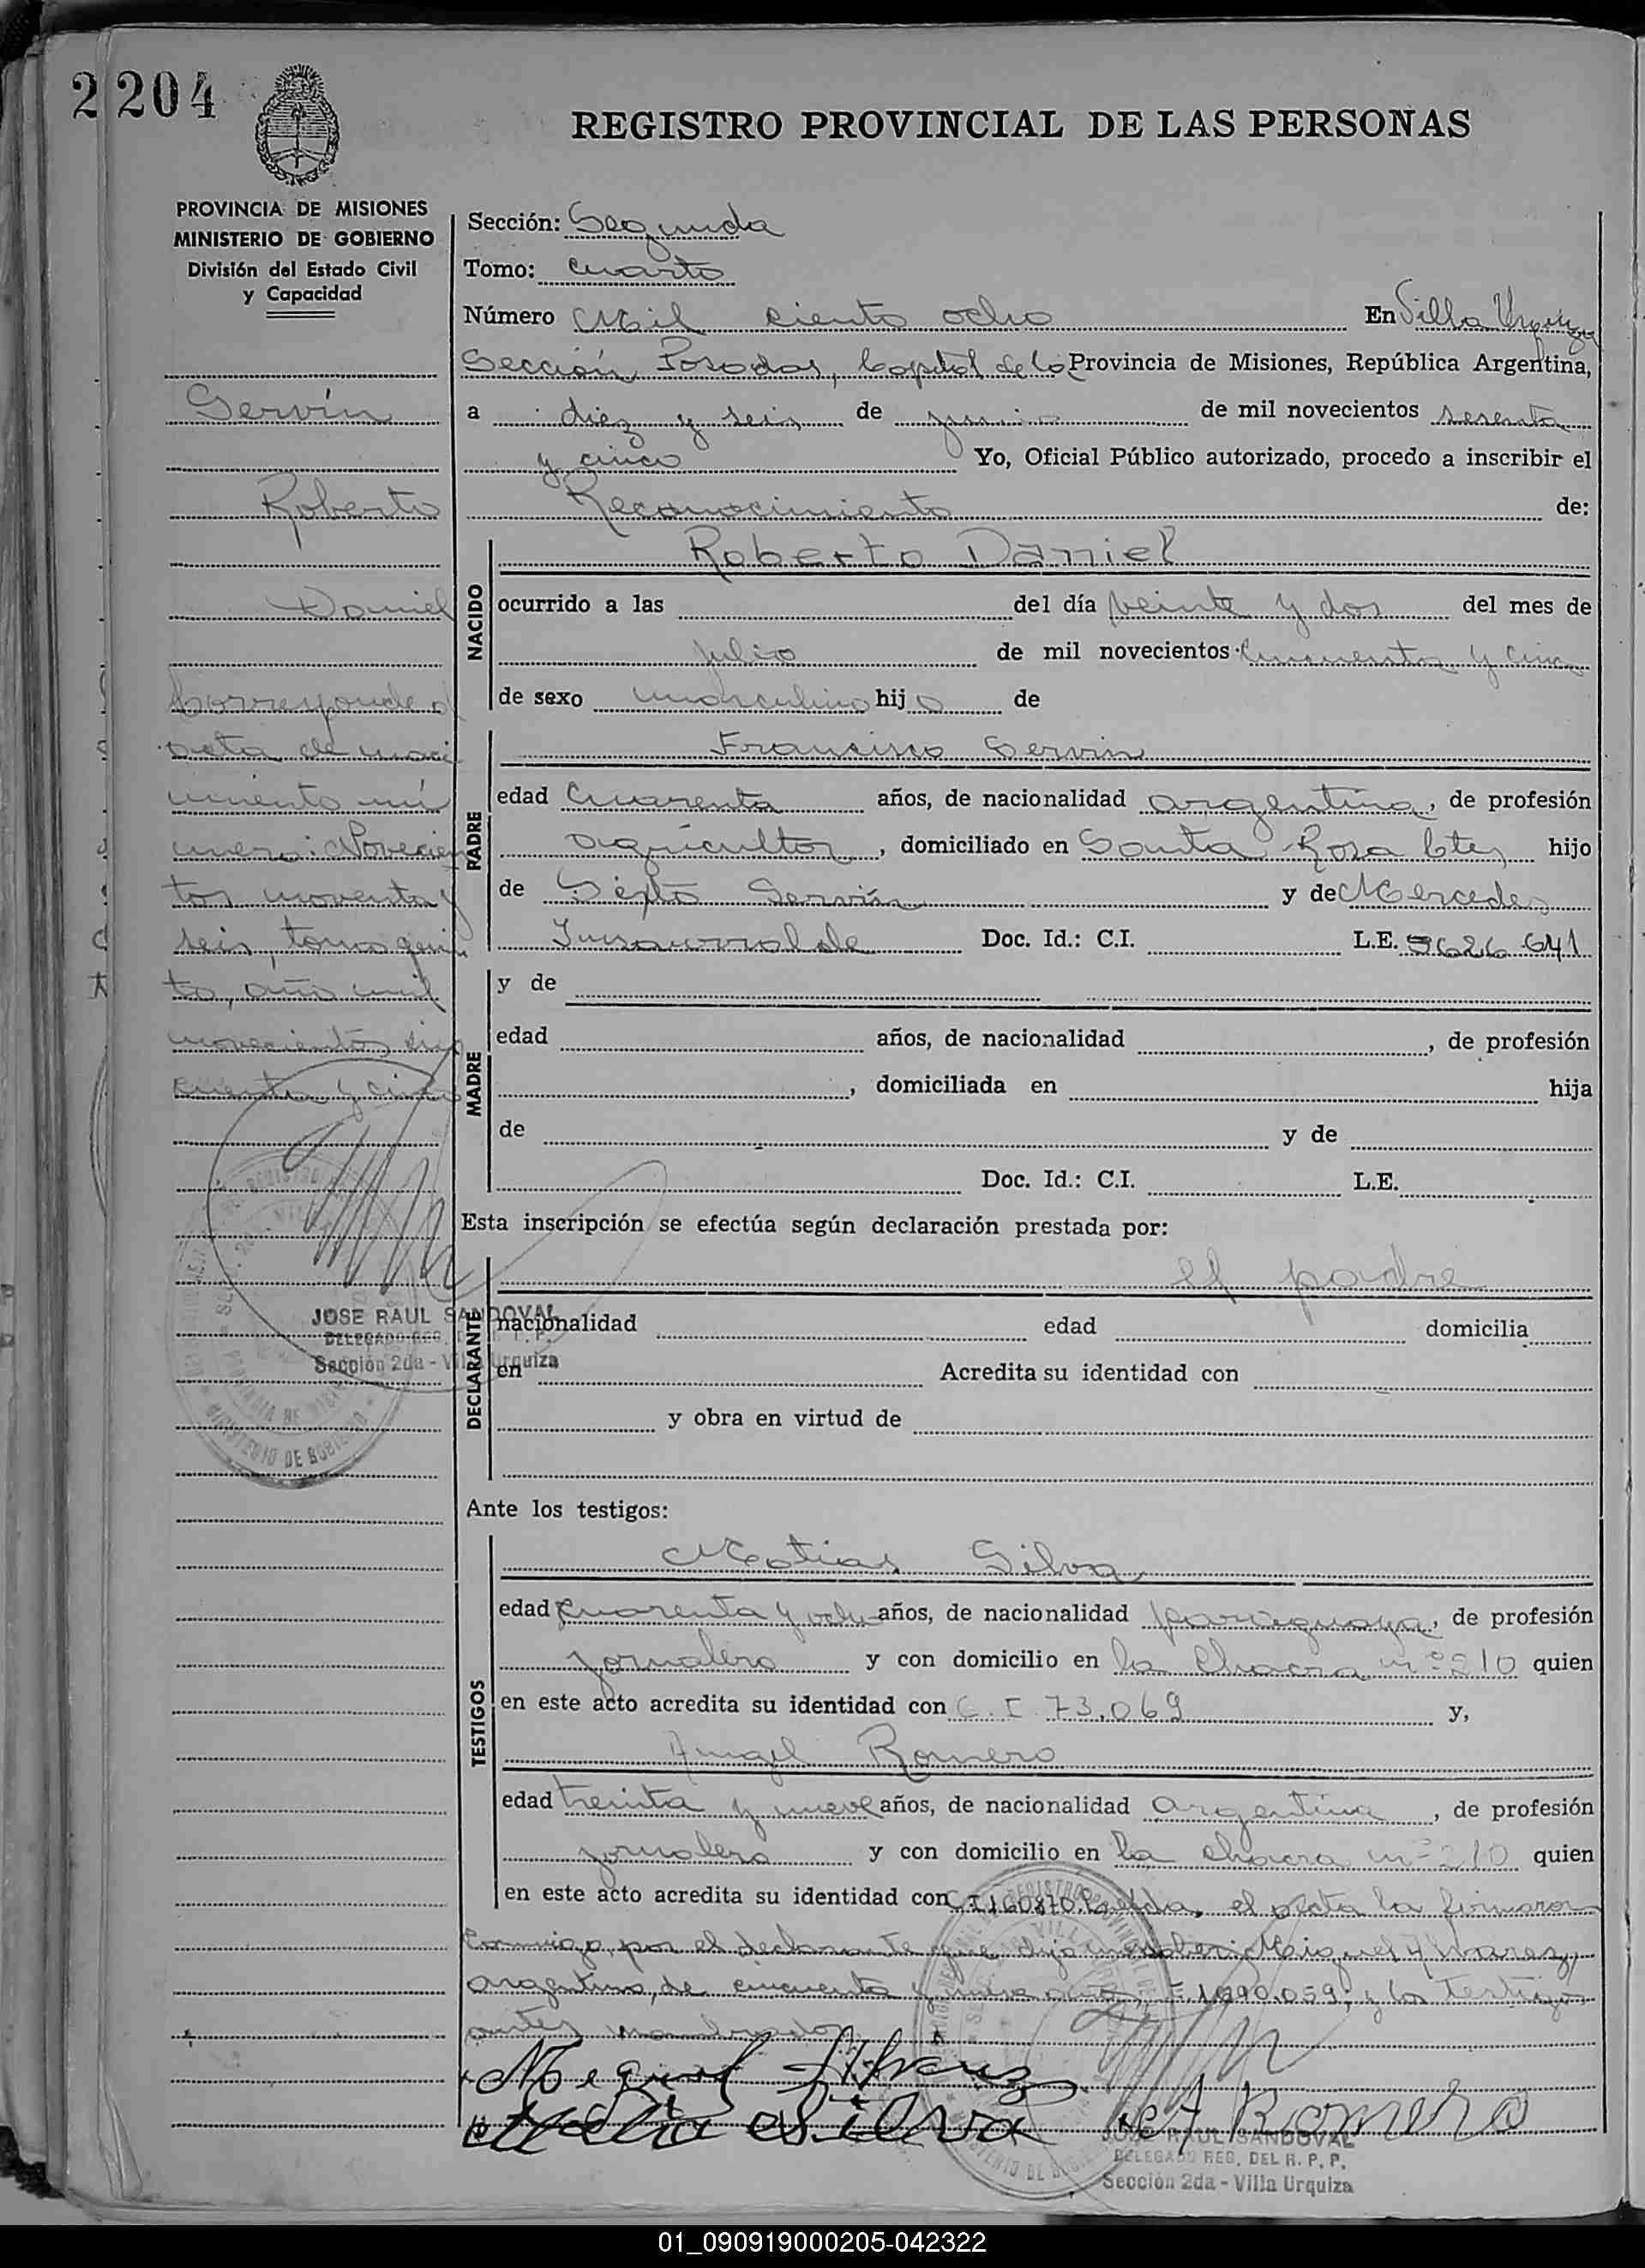 2204
REGISTRO PROVINCIAL DE LAS PERSONAS
PROVINCIA DE MISIONES
MINISTERIO DE GOBIERNO
División del Estado Civil
y Capacidad
Servín
Roberto
Daniel
Corresponde al
acta de naci
miento nú
mero: Novecien
tos noventa y
seis, tomo quin
to, año mil
novecientos cin
cuenta y cinco
JOSE RAUL SANDOVAL
DELEGADO REG. DEL R. P. P.
Sección 2da - Villa Urquiza
Sección: Segunda
Tomo: Cuarto
Número Mil ciento ocho En Villa Urquiza
Sección Posadas, Capital de la Provincia de Misiones, República Argentina,
a diez y seis de junio de mil novecientos sesenta
y cinco Yo, Oficial Público autorizado, procedo a inscribir el
Reconocimiento de:
NACIDO
Roberto Daniel
ocurrido a las del día veinte y dos del mes de
julio de mil novecientos cincuenta y cinco
de sexo masculino hijo de
PADRE
Francisco Servin
edad Cuarenta años, de nacionalidad argentina, de profesión
agricultor, domiciliado en Santa Rosa Ctes hijo
de Sixto Servín y de Mercedes
Insaurralde Doc. Id.: C.I. L.E. 5626 641
MADRE
y de
edad años, de nacionalidad , de profesión
, domiciliada en hija
de y de
Doc. Id.: C.I. L.E.
Esta inscripción se efectúa según declaración prestada por:
DECLARANTE
el padre
nacionalidad edad domicilia
en Acredita su identidad con
y obra en virtud de
Ante los testigos:
TESTIGOS
Matias Silva
edad cuarenta y ocho años, de nacionalidad paraguaya, de profesión
jornalero y con domicilio en la Chacra nº 210 quien
en este acto acredita su identidad con C.I 73.069 y,
Angel Romero
edad treinta y nueve años, de nacionalidad argentina, de profesión
jornalero y con domicilio en la chacra nº 210 quien
en este acto acredita su identidad con C.I 160870. Leída, el acta la firmaron
conmigo, por el declarante que dijo no saber: Miguel Alvarez,
argentino, de cincuenta y nueve años, 1.690.059, y los testigos
antes nombrados
Miguel Alvarez
Matia Silva
A Romero
JOSE RAUL SANDOVAL
DELEGADO REG. DEL R. P. P.
Sección 2da - Villa Urquiza
01_090919000205-042322